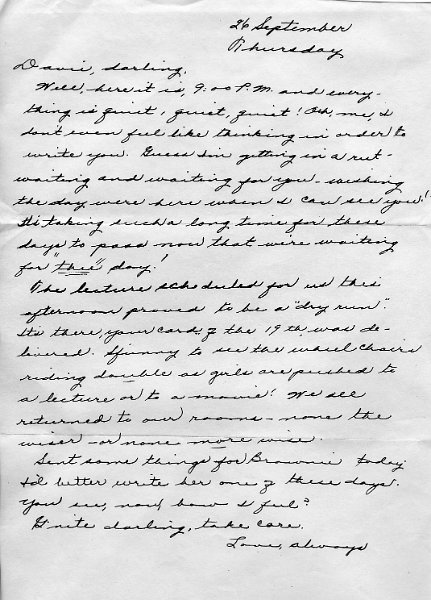 26 September
Thursday
Davie, darling,
Well, here it is, 9:00 P.M. and every-
thing is quiet, quiet, quiet! Oh, me, I
don't even feel like thinking in order to
write you. Guess I'm getting in a rut -
waiting and waiting for you - wishing
the day were here when I can see you!
It's taking such a long time for these
days to pass now that we're waiting
for "thee" day!
The lecture scheduled for us this
afternoon proved to be a "dry run".
It's there, your card of the 19th was de-
livered. Funny to see the wheel chairs
riding double as girls are pushed to
a lecture or to a movie! We all
returned to our rooms - none the
wiser - or none more wise.
Sent some things for Brownie today
I'd better write her one of these days.
You see, now, how I feel?
G'nite darling, take care.
Love, always